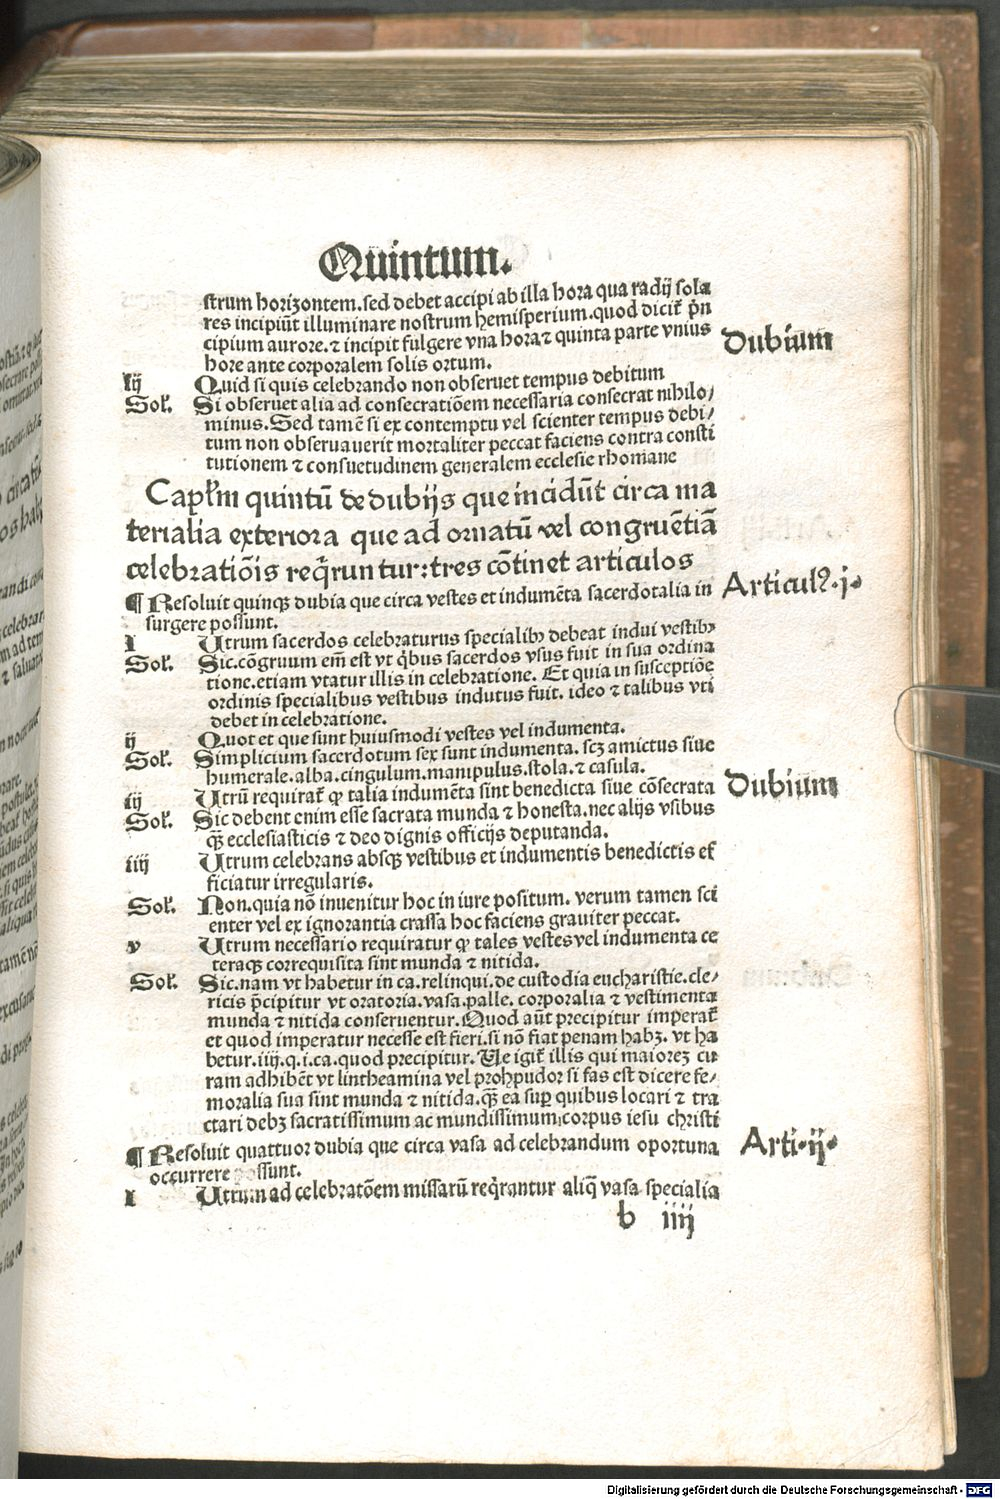 Quintum.
strum horizontem. sed debet accipi ab illa hora qua radij sola
res incipiūt illuminare nostrum hemisperium. quod dicit̄ p̄n
cipium aurore. ⁊ incipit fulgere vna hora ⁊ quinta parte vnius
hore ante corporalem solis ortum.
Dubium
iij Quid si quis celebrando non obseruet tempus debitum
Sol̄. Si obseruet alia ad consecratiōem necessaria consecrat nihilo/
minus. Sed tamē si ex contemptu vel scienter tempus debi/
tum non obseruauerit mortaliter peccat faciens contra consti
tutionem ⁊ consuetudinem generalem ecclesie rhomane
Cap̄lm quintū de dubijs que incidūt circa ma
terialia exteriora que ad ornatū vel congruētiā
celebratiōis reqͥruntur: tres cōtinet articulos
¶ Resoluit quinqꝫ dubia que circa vestes et indumēta sacerdotalia in
surgere possunt.
Articulꝰ. j.
i Utrum sacerdos celebraturus specialibꝫ debeat indui vestibꝫ
Sol̄. Sic. cōgruum em̄ est vt qͥbus sacerdos vsus fuit in sua ordina
tione. etiam vtatur illis in celebratione. Et quia in susceptiōe
ordinis specialibus vestibus indutus fuit. ideo ⁊ talibus vti
debet in celebratione.
ij Quot et que sunt huiusmodi vestes vel indumenta.
Sol̄. Simplicium sacerdotum sex sunt indumenta. scꝫ amictus siue
humerale. alba. cingulum. manipulus. stola. ⁊ casula.
Dubium
iij Utrū requirat̄ ꝙ talia indumēta sint benedicta siue cōsecrata
Sol̄. Sic debent enim esse sacrata munda ⁊ honesta. nec alijs vsibus
qꝫ̄ ecclesiasticis ⁊ deo dignis officijs deputanda.
iiij Utrum celebrans absqꝫ vestibus et indumentis benedictis ef
ficiatur irregularis.
Sol̄. Non. quia nō inuenitur hoc in iure positum. verum tamen sci
enter vel ex ignorantia crassa hoc faciens grauiter peccat.
v Utrum necessario requiratur ꝙ tales vestes vel indumenta ce
teraqꝫ correquisita sint munda ⁊ nitida.
Sol̄. Sic. nam vt habetur in ca. relinqui. de custodia eucharistie. cle/
ricis p̄cipitur vt oratoria. vasa. palle. corporalia ⁊ vestimenta
munda ⁊ nitida conseruentur. Quod aūt precipitur imperat̄
et quod imperatur necesse est fieri. si nō fiat penam habꝫ. vt ha
betur. iiij. q. i. ca. quod precipitur. Ue igit̄ illis qui maiorez cu
ram adhibēt vt lintheamina vel prohpudor si fas est dicere fe/
moralia sua sint munda ⁊ nitida. qꝫ̄ ea sup̄ quibus locari ⁊ tra
ctari debꝫ sacratissimum ac mundissimum corpus iesu christi
¶ Resoluit quattuor dubia que circa vasa ad celebrandum oportuna
occurrere possunt.
Arti. ij.
i Utrum ad celebratōem missarū reqͥrantur aliqͣ vasa specialia
b iiij
Digitalisierung gefördert durch die Deutsche Forschungsgemeinschaft - DFG